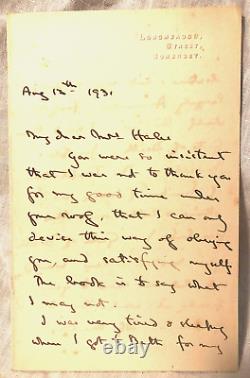 LONGMEADOW,
STREET,
SOMERSET.
Aug 12th 1931
My dear Mrs Hale
You were so insistent
that I was not to thank you
for my good time under
your roof, that I can only
devise this way of obeying
you, and satisfying myself
The book is to say what
I may not.
I was very tired & sleepy
when I got to Bath for my